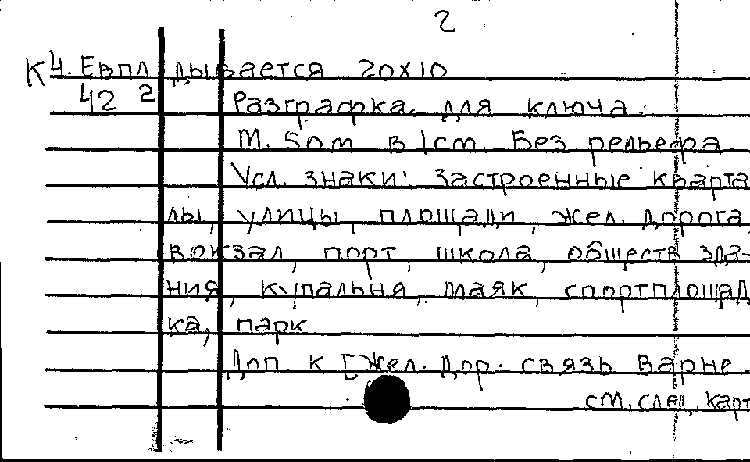 2
К4. Евпл дывается 20х10
42 2 Разграфка для ключа.
М. 50м в 1см. Без рельефа
Усл. знаки: Застроенные кварта
лы, улицы, площади, жел. дорога,
вокзал, порт, школа, обществ зда-
ния, купальня, маяк, спортплощад
ка, парк
Доп. к [Жел. дор. связь Варне
см. след. карт